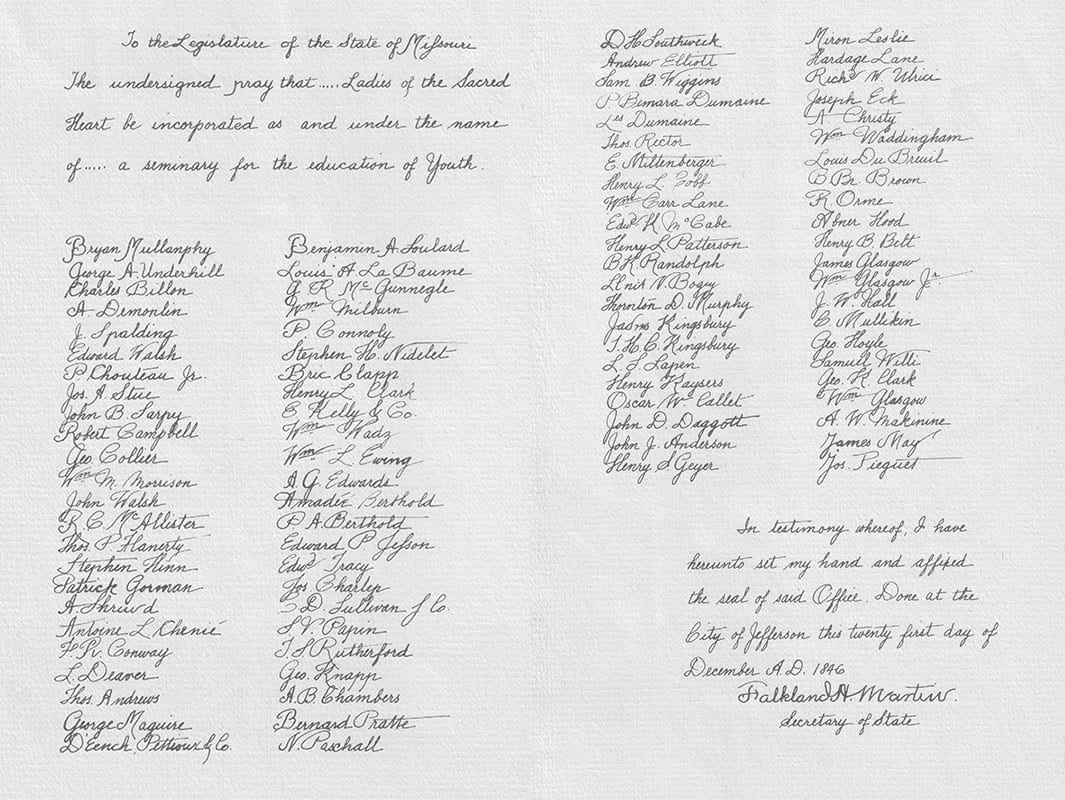 To the Legislature of the State of Missouri
The undersigned pray that ..... Ladies of the Sacred
Heart be incorporated as and under the name
of ..... a seminary for the education of Youth.
Bryan Mullanphy
George A. Underhill
Charles Billon
A. Demonlin
J. Spalding
Edward Walsh
P. Chouteau Jr.
Jos. A. Stue
John B. Sarpy
Robert Campbell
Geo. Collier
Wm M. Morrison
John Walsh
R. C. McAllister
Thos. P. Flanerty
Stephen Flinn
Patrick Gorman
A.
Antoine L. Chenié
Conway
L. Deaver
Thos. Andrews
George Maguire
D'Eench, & Co.
Benjamin A. Soulard
Louis A La Baume
G R Mc Gunnegle
Wm Milburn
P Connoly
Stephen H. Nidelet
Bric Clapp
Henry L. Clark
E Kelly & Co.
Wm Wadz
Wm L. Ewing
A.G. Edwards
Amadée Berthold
P A. Berthold
Edward P Jesson
Edwd Tracy
Jos Charlep
D. Sullivan & Co.
S. V. Papin
T. S Rutherford
Geo. Knapp
A.B. Chambers
Bernard Pratte
N. Paschall
D H Southwick
Andrew Elliott
Sam B. Wiggins
P. Bemara Dumaine
Les Dumaine
Thos. Rector
E. Millenberger
Henry L. Cobb
Wm Carr Lane
Edwd K. McCabe
Henry L Patterson
B. K. Randolph
N. Bogy
Thornton D. Murphy
Kingsbury
J. H. C. Kingsbury
L. S. Lapen
Henry Kaysers
Oscar W. Callet
John D. Daggott
John J. Anderson
Henry S Geyer
Miron Leslie
Hardage Lane
Richd W Ulrici
Joseph Eck
A Christy
Wm Waddingham
Louis Du Breuil
B. Br. Brown
R. Orme
Abner Hood
Henry B. Belt
James Glasgow
Wm Glasgow Jr.
J. W. Hall
E. Mullikin
Geo. Hoyle
Samuel Willi
Geo. K. Clark
Wm Glasgow
A. W. Makinine
James May
Jos. Pieguet
In testimony whereof, I have
hereunto set my hand and affixed
the seal of said Office. Done at the
City of Jefferson this twenty first day of
December A.D. 1846
Falkland H. Martin.
Secretary of State